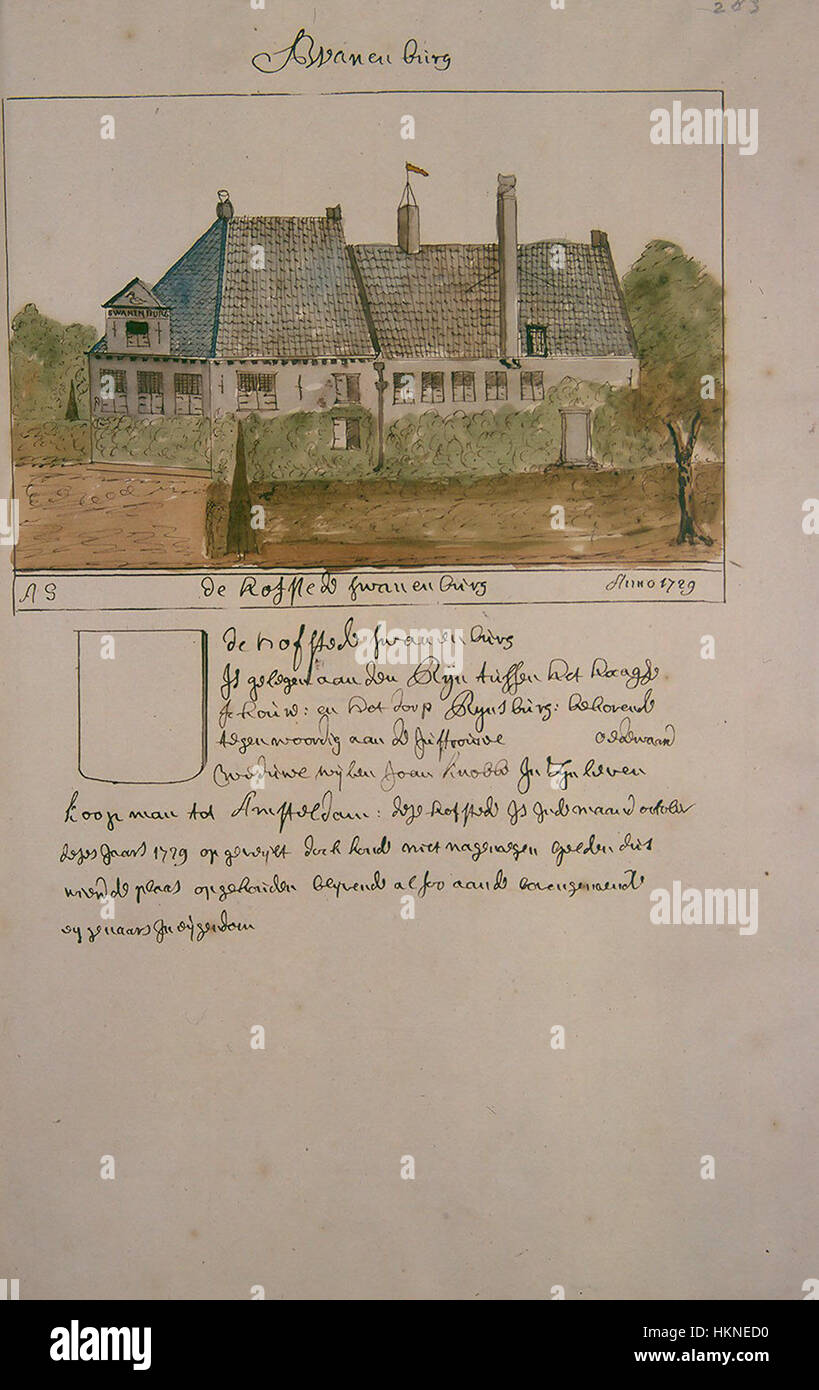 283
Swanenburg
SWANENBURG
AS de Hofstede Swanenburg Anno 1729
de Hofstede Swanenburg
Js gelegen aan den Rijn tussen het Haagse
schouw: en het dorp Rijnsburg: behorende
tegenwoordig aan de Juffrouwe
weduwe wijlen Joan Knobbe In Zyn leven
koopman tot Amsteldam: deze hofstede Js Jnde maand october
dezes Jaars 1729 op geveylt doch konde niet na genoegen gelden dus
wierd de plaats opgehouden blyvende alsoo aan de bovengemende
eygenaars Jn eygendom
alamy
a
alamy
Image ID: HKNED0
www.alamy.com